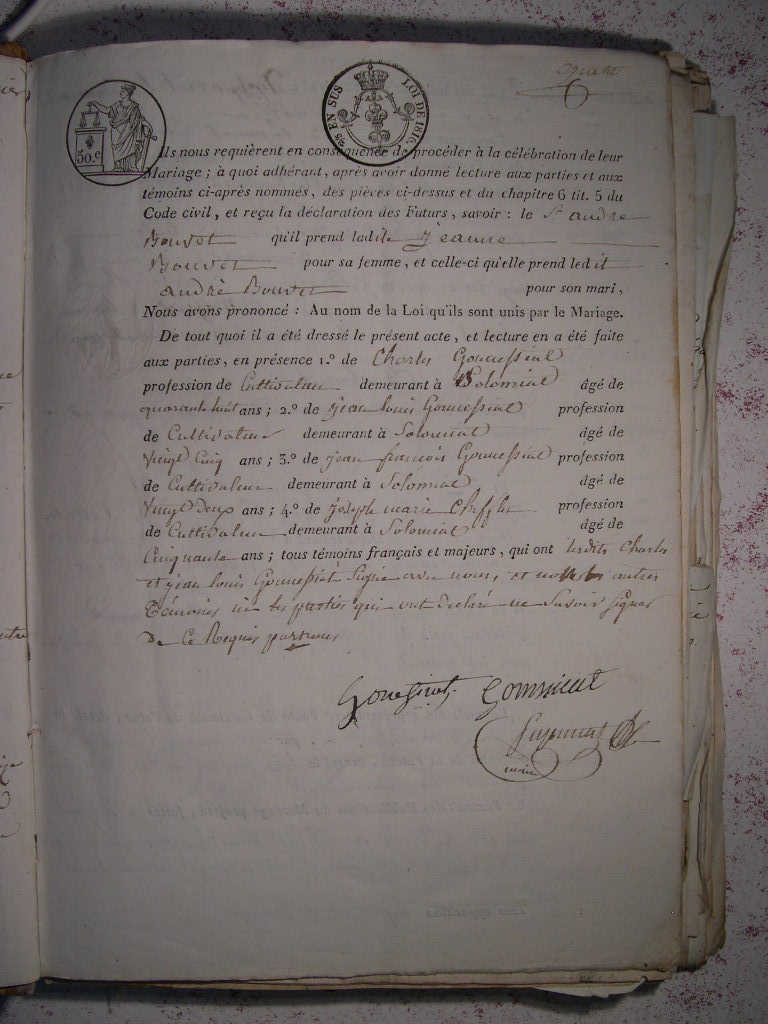 50.c
25 EN SUS LOI DE 1816.
Ils nous requièrent en conséquence de procéder à la célébration de leur
Mariage ; à quoi adhérant, après avoir donné lecture aux parties et aux
témoins ci-après nommés, des pièces ci-dessus et du chapitre 6 tit. 5 du
Code civil, et reçu la déclaration des Futurs, savoir : le Sr andre
Bouvet qu'il prend ladite jeanne
Bouvet pour sa femme, et celle-ci qu'elle prend ledit
andrè Bouvet pour son mari,
Nous avons prononcé : Au nom de la Loi qu'ils sont unis par le Mariage.
De tout quoi il a été dressé le présent acte, et lecture en a été faite
aux parties, en présence 1.º de Charles Gounessiat
profession de Cultivateur demeurant à Solomiat âgé de
quarante huit ans ; 2.º de jean louis Gounessiat profession
de Cultivateur demeurant à Solomiat âgé de
vingt Cinq ans ; 3.º de jean francois Gounessiat profession
de Cultivateur demeurant à Solomiat âgé de
vingt Deux ans ; 4.º de joseph marie profession
de Cultivateur demeurant à Solomiat âgé de
Cinquante ans ; tous témoins français et majeurs, qui ont lesdits Charles
et jean louis Gounessiat Signé avec nous, et non les autres
Témoins ni les parties qui ont declaré ne Savoir signer
De Ce Requis par nous